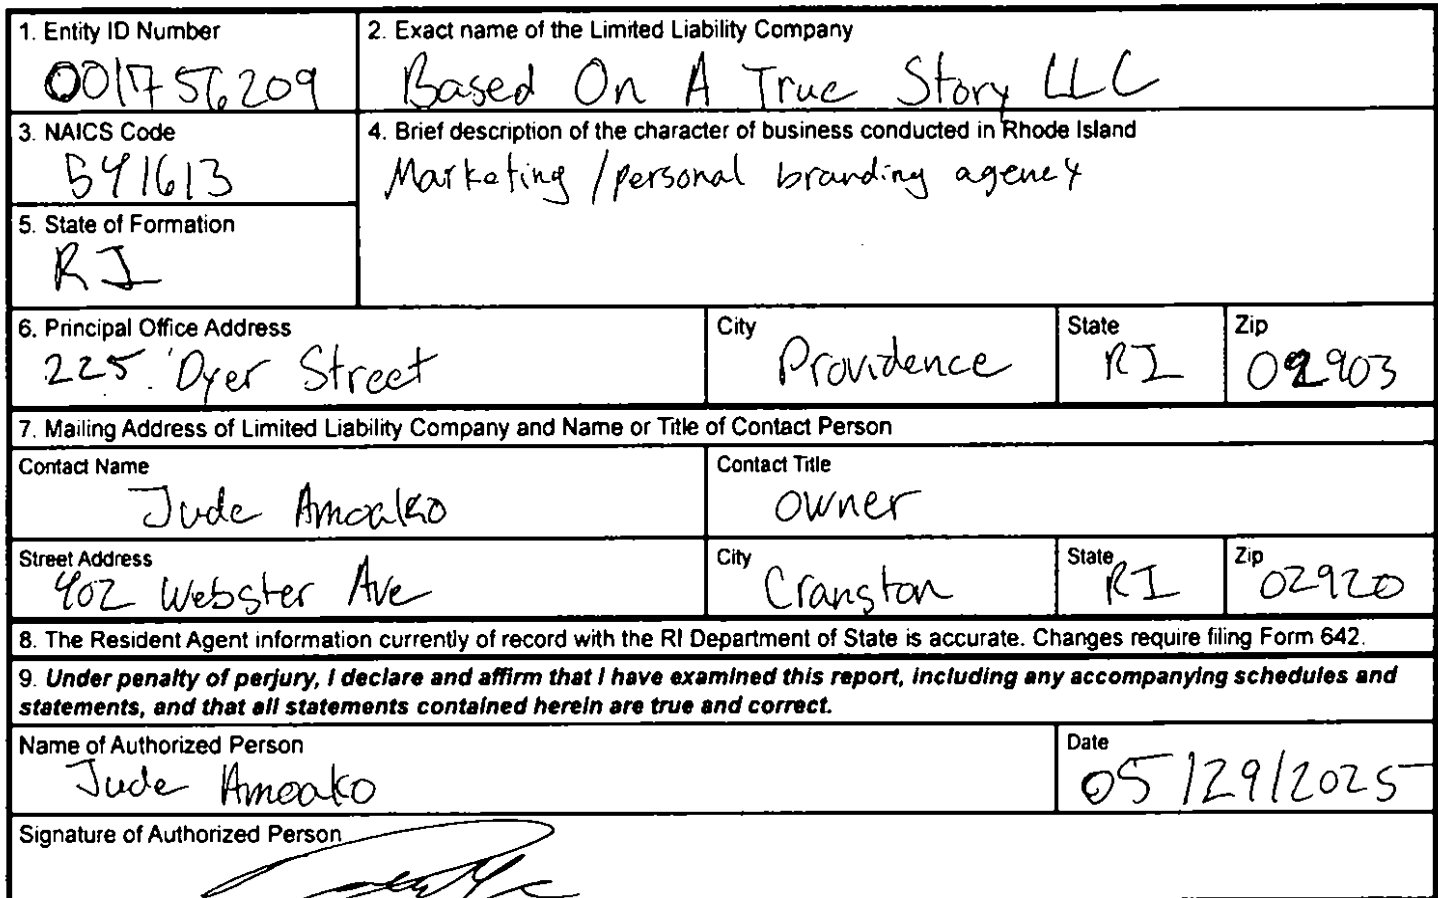 1. Entity ID Number
001756209
2. Exact name of the Limited Liability Company
Based On A True Story LLC
3. NAICS Code
541613
4. Brief description of the character of business conducted in Rhode Island
Marketing / personal branding agency
5. State of Formation
RI
6. Principal Office Address
225 Dyer Street
City
Providence
State
RI
Zip
02903
7. Mailing Address of Limited Liability Company and Name or Title of Contact Person
Contact Name
Jude Amoako
Contact Title
owner
Street Address
402 Webster Ave
City
Cranston
State
RI
Zip
02920
8. The Resident Agent information currently of record with the RI Department of State is accurate. Changes require filing Form 642.
9. Under penalty of perjury, I declare and affirm that I have examined this report, including any accompanying schedules and
statements, and that all statements contained herein are true and correct.
Name of Authorized Person
Jude Amoako
Date
05/29/2025
Signature of Authorized Person